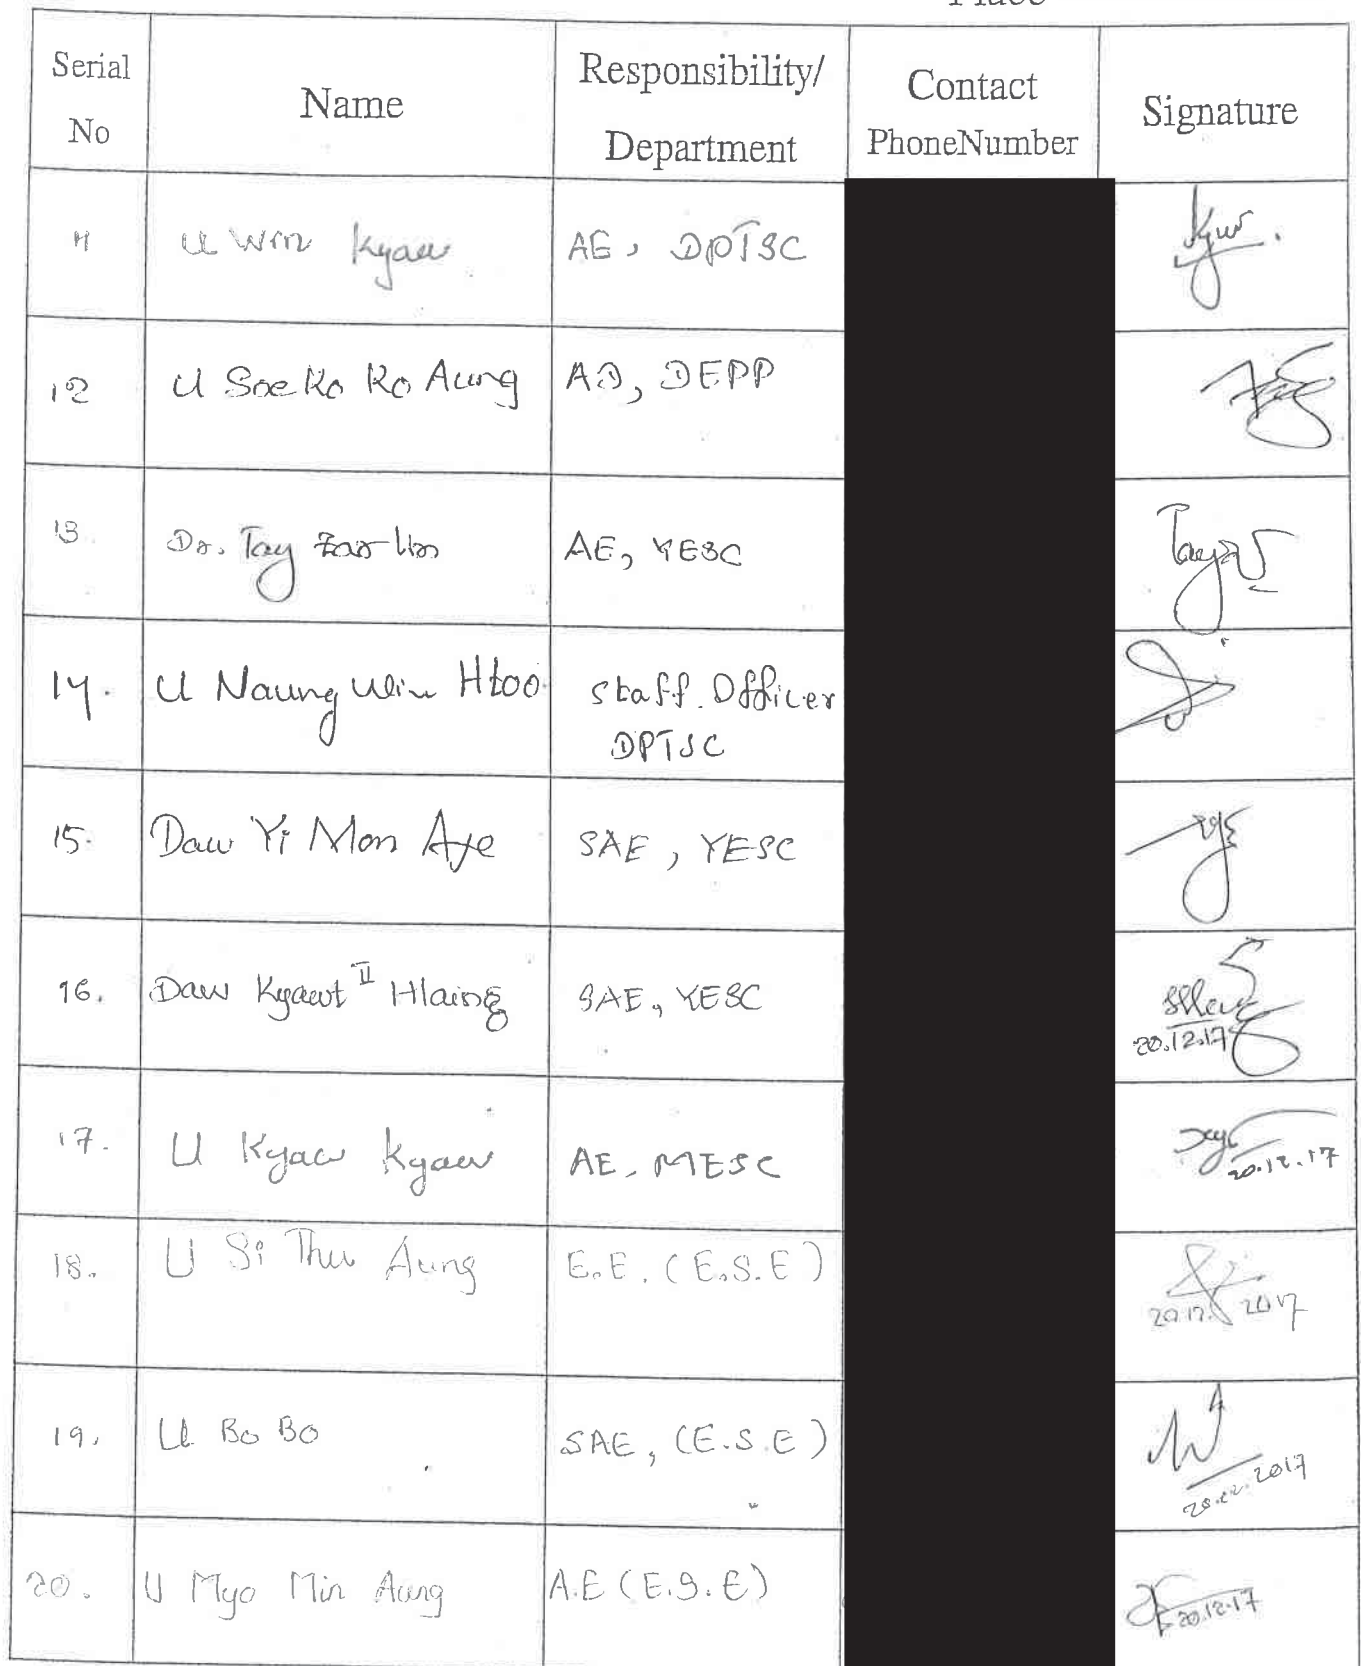 Place
Serial No
Name
Responsibility/ Department
Contact PhoneNumber
Signature
11 U Win Kyaw AE, DPTSC
12 U Soe Ko Ko Aung AD, DEPP
13. Dr. Tay Zar Lin AE, YESC
14. U Naung Win Htoo Staff. Officer
DPTSC
15. Daw Yi Mon Aye SAE, YESC
16. Daw Kyawt II Hlaing SAE, YESC
20.12.17
17. U Kyaw Kyaw AE, MESC
20.12.17
18. U Si Thu Aung E.E. (E.S.E)
20.12.2017
19. U Bo Bo SAE, (E.S.E)
20.12.2017
20. U Myo Min Aung A.E (E.S.E)
20.12.17